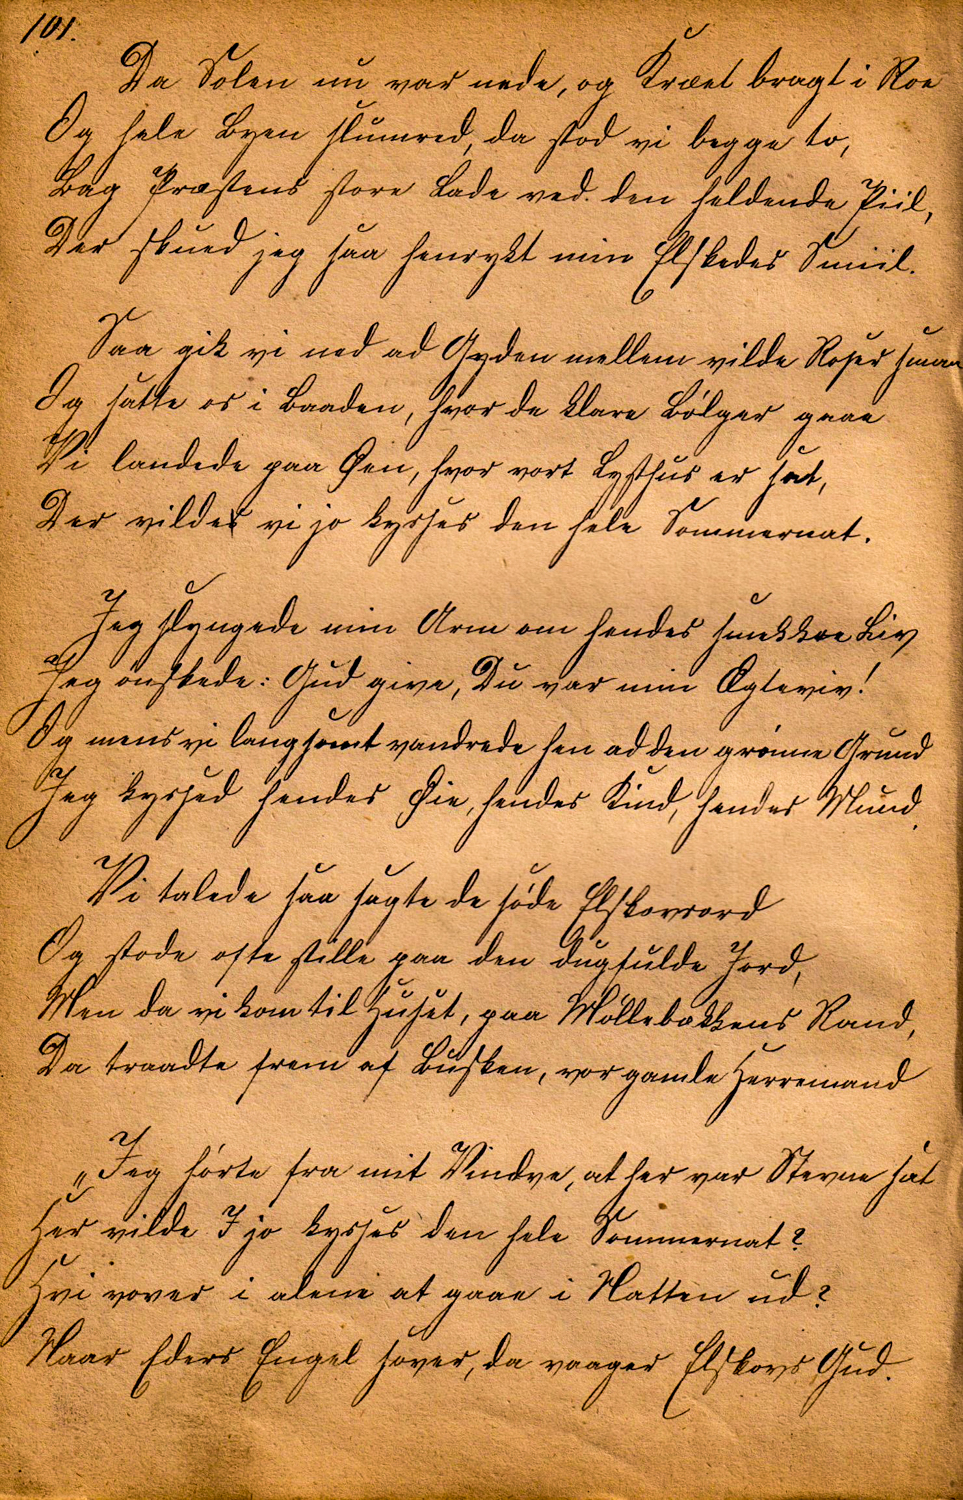 101.
Da Solen nu var nede, og Kræet bragt i Roe
Og hele Byen slumred, da stod vi begge to,
Bag Præstens store Lade ved. den heldende Piil,
Der skued jeg saa henrykt min Elskedes Smiil.
Saa gik vi ned ad Gyden mellem vilde Roser smaa
Og satte os i Baaden, hvor de klare Bölger gaae
Vi landede paa Øen, hvor vort Lysthus er sat,
Der vilde vi jo kysses den hele Sommernat.
Jeg slyngede min Arm om hendes smekkre Liv
Jeg önskede: Gud give, Du var min Ægteviv!
Og mens vi langsomt vandrede hen ad den grönne Grund
Jeg kyssed hendes Øie, hendes Kind, hendes Mund.
Vi talede saa sagte de söde Elskovsord
Og stode ofte stille paa den dugfulde Jord,
Men da vi kom til Huset, paa Möllebakkens Rand,
Da traadte frem af Busken, vor gamle Herremand
„Jeg hörte fra mit Vindve, at her var Stevne sat
Her vilde I jo kysses den hele Sommernat?
Hvi vover i alene at gaae i Natten ud?
Naar Eders Engel sover, da vaager Elskovs Gud.